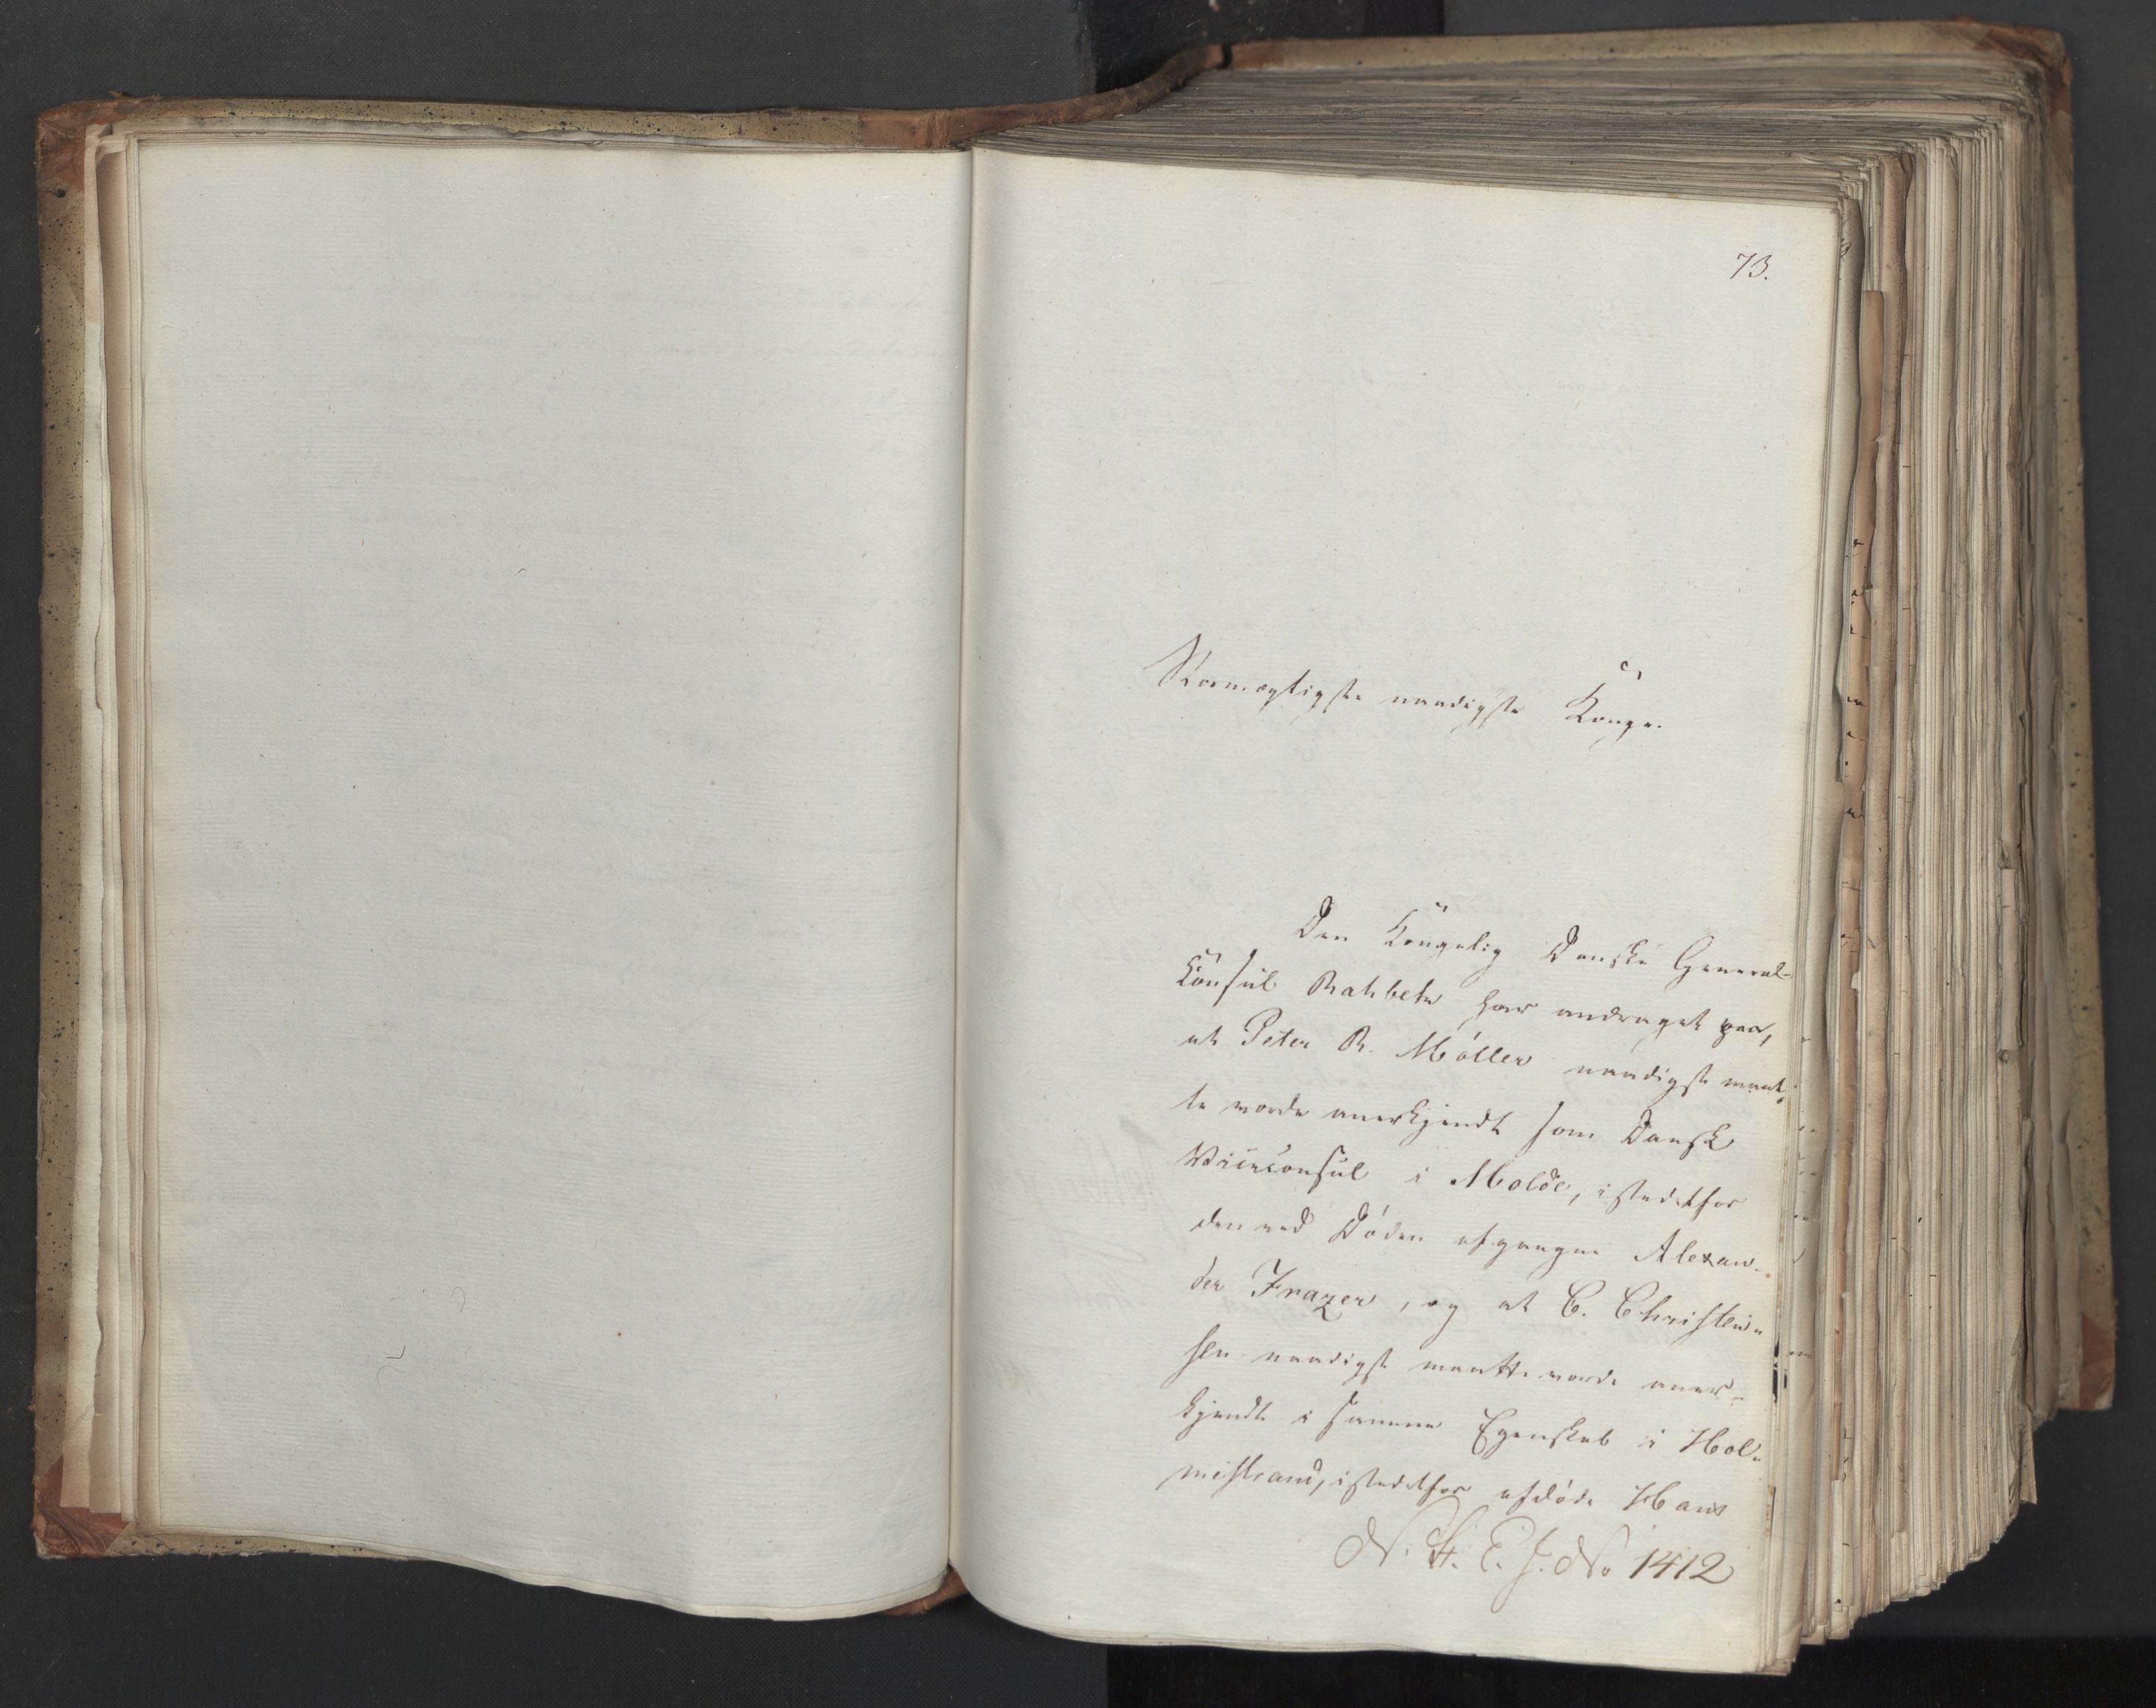 73.
Stormægtigste naadigste Konge.
Den Kongelig Danske General-
Konsul Rahbek har andraget paa,
at Peter R. Möller naadigst maat-
te vorde anerkjendt som Dansk
Viceconsul i Molde, istedetfor
den ved Döden afgangne Alexan-
der Frazer, og at C. Christen-
sen naadigst maatte vorde aner-
kjendt i samme Egenskab i Hol-
mestrand, istedetfor afdöde Hans
N. St. E. J. No 1412